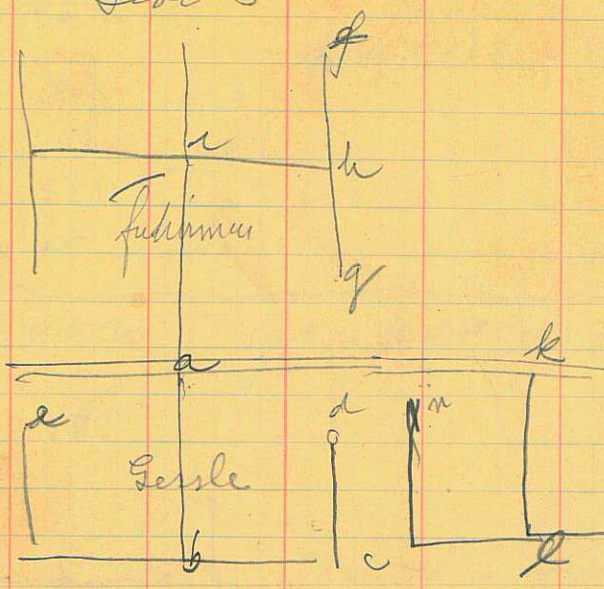 f
i
h
Fuhrman
g
a
k
e
d
n
Gessle
b
c
l